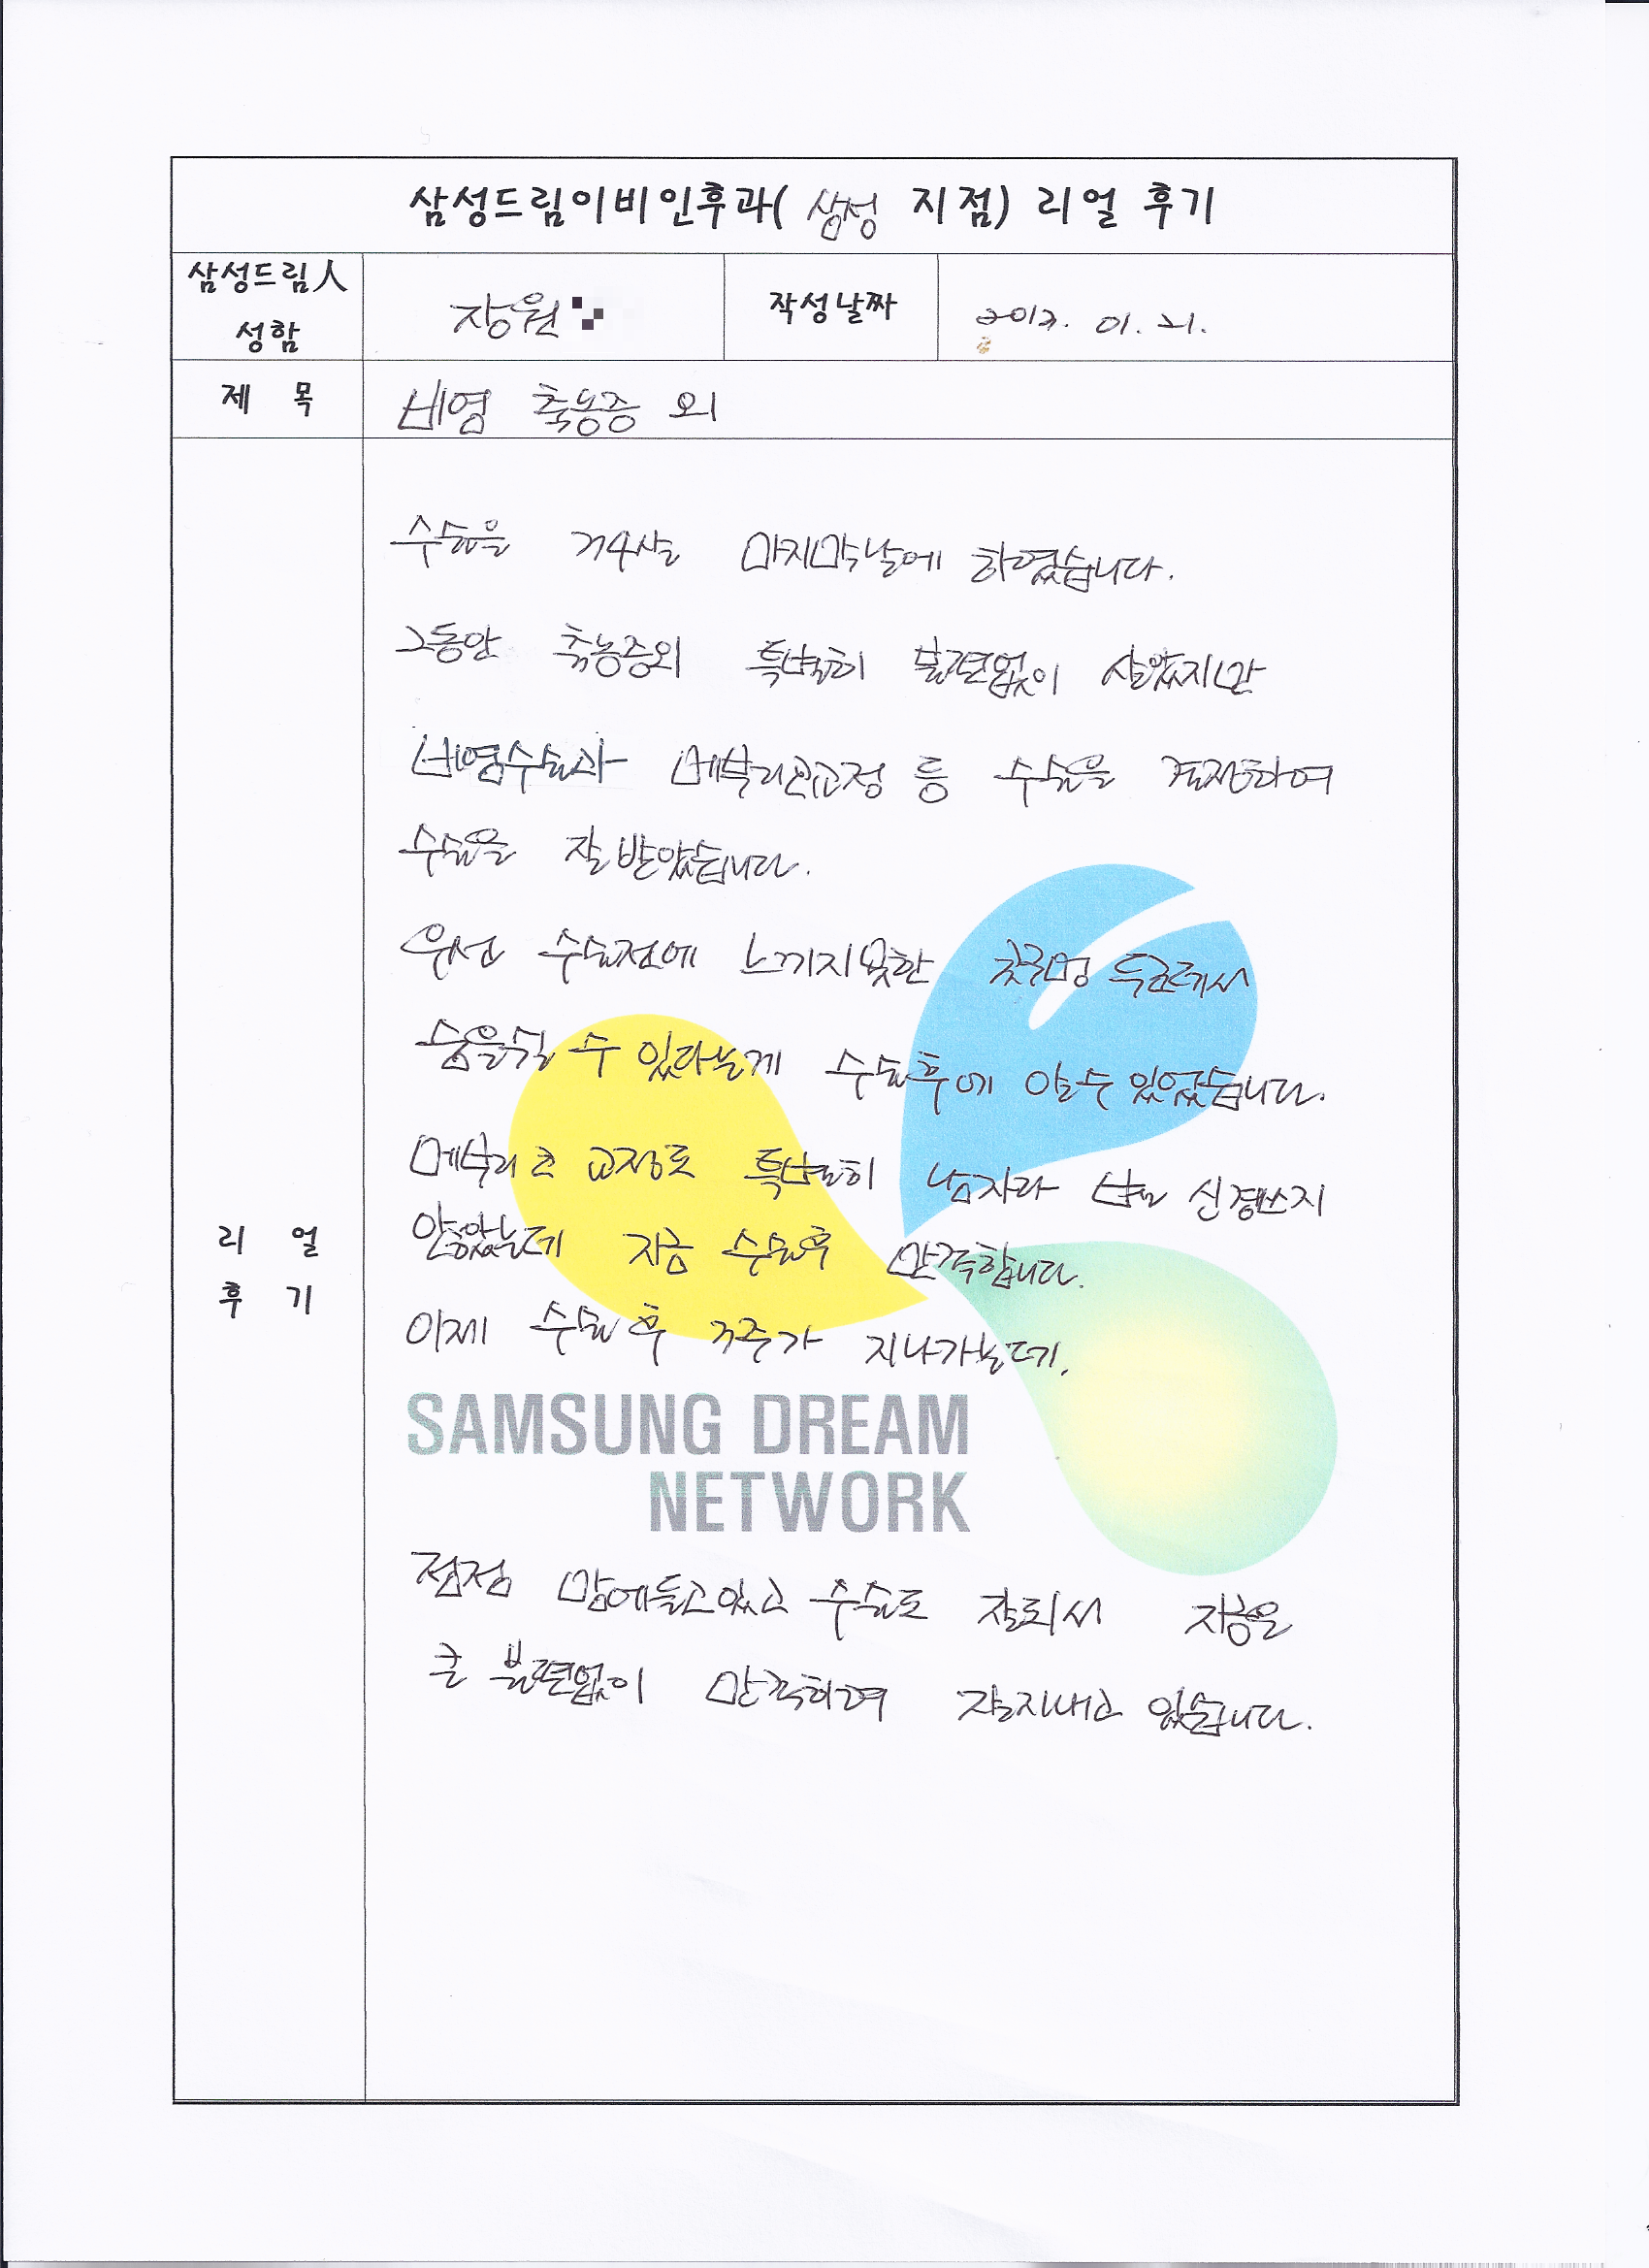 삼성드림이비인후과( 삼성 지점) 리얼 후기
삼성드림人 성함
장원
작성날짜
01. 21.
제 목
비염 축농증 외
리 얼
후 기
수술을 마지막날에 하였습니다.
그동안 축농증외 특별히 불편없이 살았지만
비염수술과 메부리코교정 등 수술을 결정하여
수술을 잘 받았습니다.
우선 수술전에 느끼지못한 콧구멍
숨을쉴 수 있다는게 수술후에 알수 있었습니다.
메부리코 교정도 특별히 남자라 별 신경쓰지
않았는데 지금 수술후 만족합니다.
이제 수술 후 3주가 지나가는데.
SAMSUNG DREAM
NETWORK
점점 맘에들고있고 수술도 잘되서 지금은
큰 불편없이 만족하며 잘지내고 있습니다.